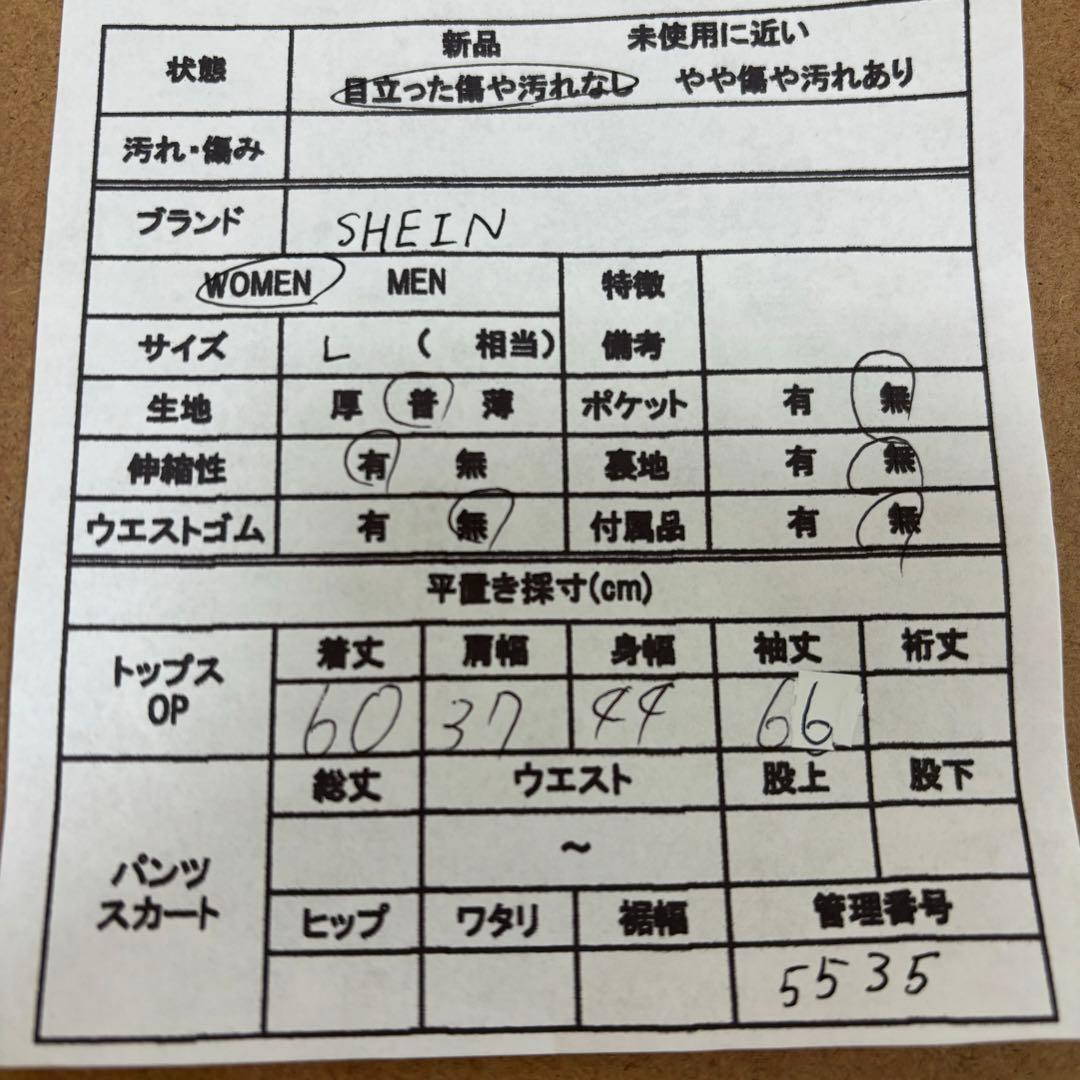 状態 新品 未使用に近い
目立った傷や汚れなし やや傷や汚れあり
汚れ・傷み
ブランド SHEIN
WOMEN MEN 特徴
サイズ L ( 相当) 備考
生地 厚 普 薄 ポケット 有 無
伸縮性 有 無 裏地 有 無
ウエストゴム 有 無 付属品 有 無
平置き採寸(cm)
トップス OP 着丈 肩幅 身幅 袖丈 裄丈
60 37 44 66
パンツ スカート 総丈 ウエスト 股上 股下
～
ヒップ ワタリ 裾幅 管理番号
5535